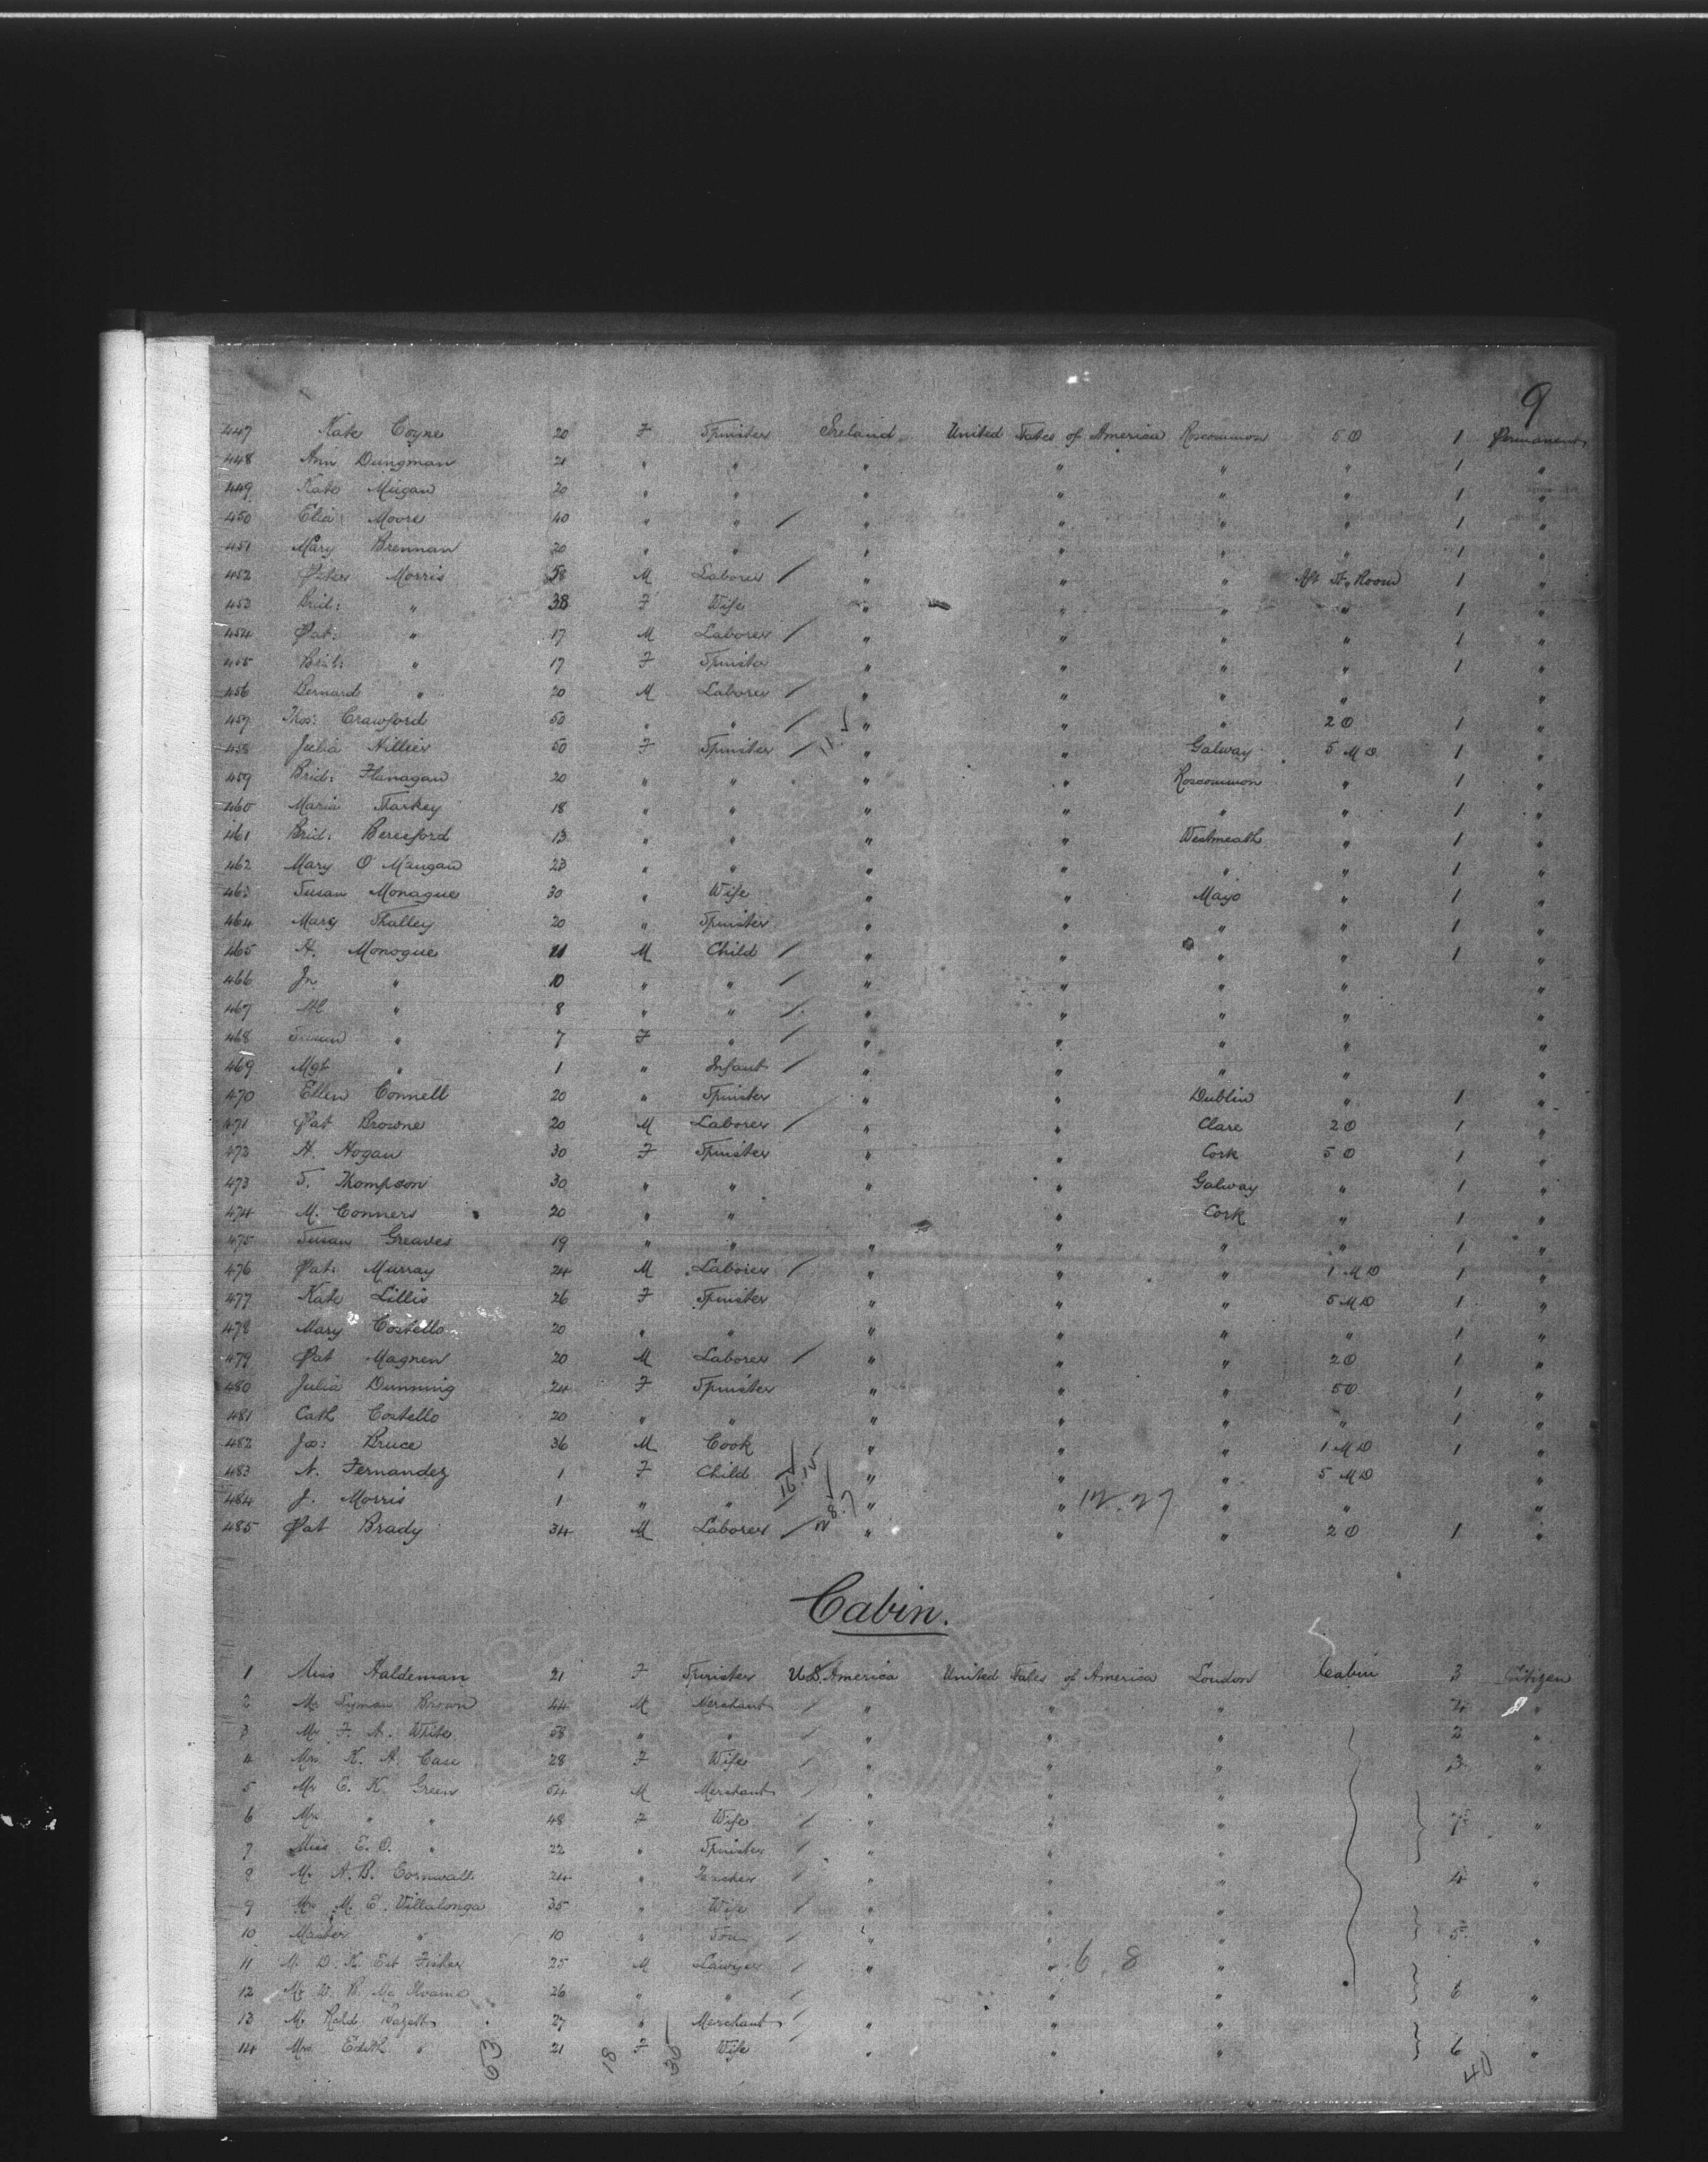 9
447 Kate Coyne 20 F Spinster Ireland United States of America Roscommon 5 O 1 Permanent
448 Ann Dungman 21 " " " " " " 1 "
449 Kate Migan 20 " " " " " " 1 "
450 Eliz: Moore 40 " " / " " " " 1 "
451 Mary Brennan 20 " " " " " " 1 "
452 Peter Morris 58 M Laborer / " " " Aft St. Room 1 "
453 Brid: " 38 F Wife " " " " 1 "
454 Pat: " 17 M Laborer / " " " " 1 "
455 Brid: " 17 F Spinster " " " " 1 "
456 Bernard " 20 M Laborer / " " " " "
457 Thos: Crawford 50 " " / " " " 2 O 1 "
458 Julia Hillier 50 F Spinster / " " Galway 5 M D 1 "
459 Brid: Flanagan 20 " " " " Roscommon " 1 "
460 Maria Starkey 18 " " " " " " 1 "
461 Brid: Beresford 13 " " " " Westmeath " 1 "
462 Mary O'Maugan 23 " " " " " " 1 "
463 Susan Monague 30 " Wife " " Mayo " 1 "
464 Mary Shalley 20 " Spinster " " " " 1 "
465 H. Monogue 11 M Child / " " " " 1 "
466 Jn " 10 " " / " " " " "
467 Ml " 8 " " / " " " " "
468 Susan " 7 F " / " " " " "
469 Mgt " 1 " Infant / " " " " "
470 Ellen Connell 20 " Spinster " " Dublin " 1 "
471 Pat Browne 20 M Laborer / " " Clare 2 O 1 "
472 H. Hogan 30 F Spinster " " Cork 5 O 1 "
473 S. Thompson 30 " " " " Galway " 1 "
474 M. Conners 20 " " " Cork " 1 "
475 Susan Greaves 19 " " " " " " 1 "
476 Pat: Murray 24 M Laborer / " " " 1 M D 1 "
477 Kate Lillis 26 F Spinster " " " 5 M D 1 "
478 Mary Costello 20 " " " " " " 1 "
479 Pat Magnen 20 M Laborer / " " " 2 O 1 "
480 Julia Dunning 24 F Spinster " " " 5 O 1 "
481 Cath Costello 20 " " " " " " 1 "
482 Jas: Bruce 36 M Cook " " " 1 M D 1 "
483 N. Fernandez 1 F Child " " " 5 M D "
484 J. Morris 1 " " " " 12.27 " " "
485 Pat Brady 34 M Laborer / " " " 2 O 1 "
Cabin.
1 Miss Haldeman 21 F Spinster U.S. America United States of America London Cabin 3 Citizen
2 Mr Lyman Brown 44 M Merchant / " " " 4 "
3 Mr F. A. White 58 " " / " " " 2 "
4 Mrs K. A. Case 28 F Wife / " " " 3 "
5 Mr E. K. Green 54 M Merchant / " " "
6 Mrs " " 48 F Wife / " " " 7 "
7 Miss E. O. " 22 " Spinster / " " "
8 M. A. B. Cornwall 24 " Teacher / " " " 4 "
9 Mrs M. E. Villalonga 35 " Wife / " " "
10 Master " 10 " Son / " " " 5 "
11 M. D. K. Est Fisher 25 M Lawyer / " " 6 8 "
12 Mr W. B. 26 " " / " " " 6 "
13 Mr Rchd. 27 " Merchant / " " "
14 Mrs Edith " 21 F Wife " " " 6 "
63 18 36 40